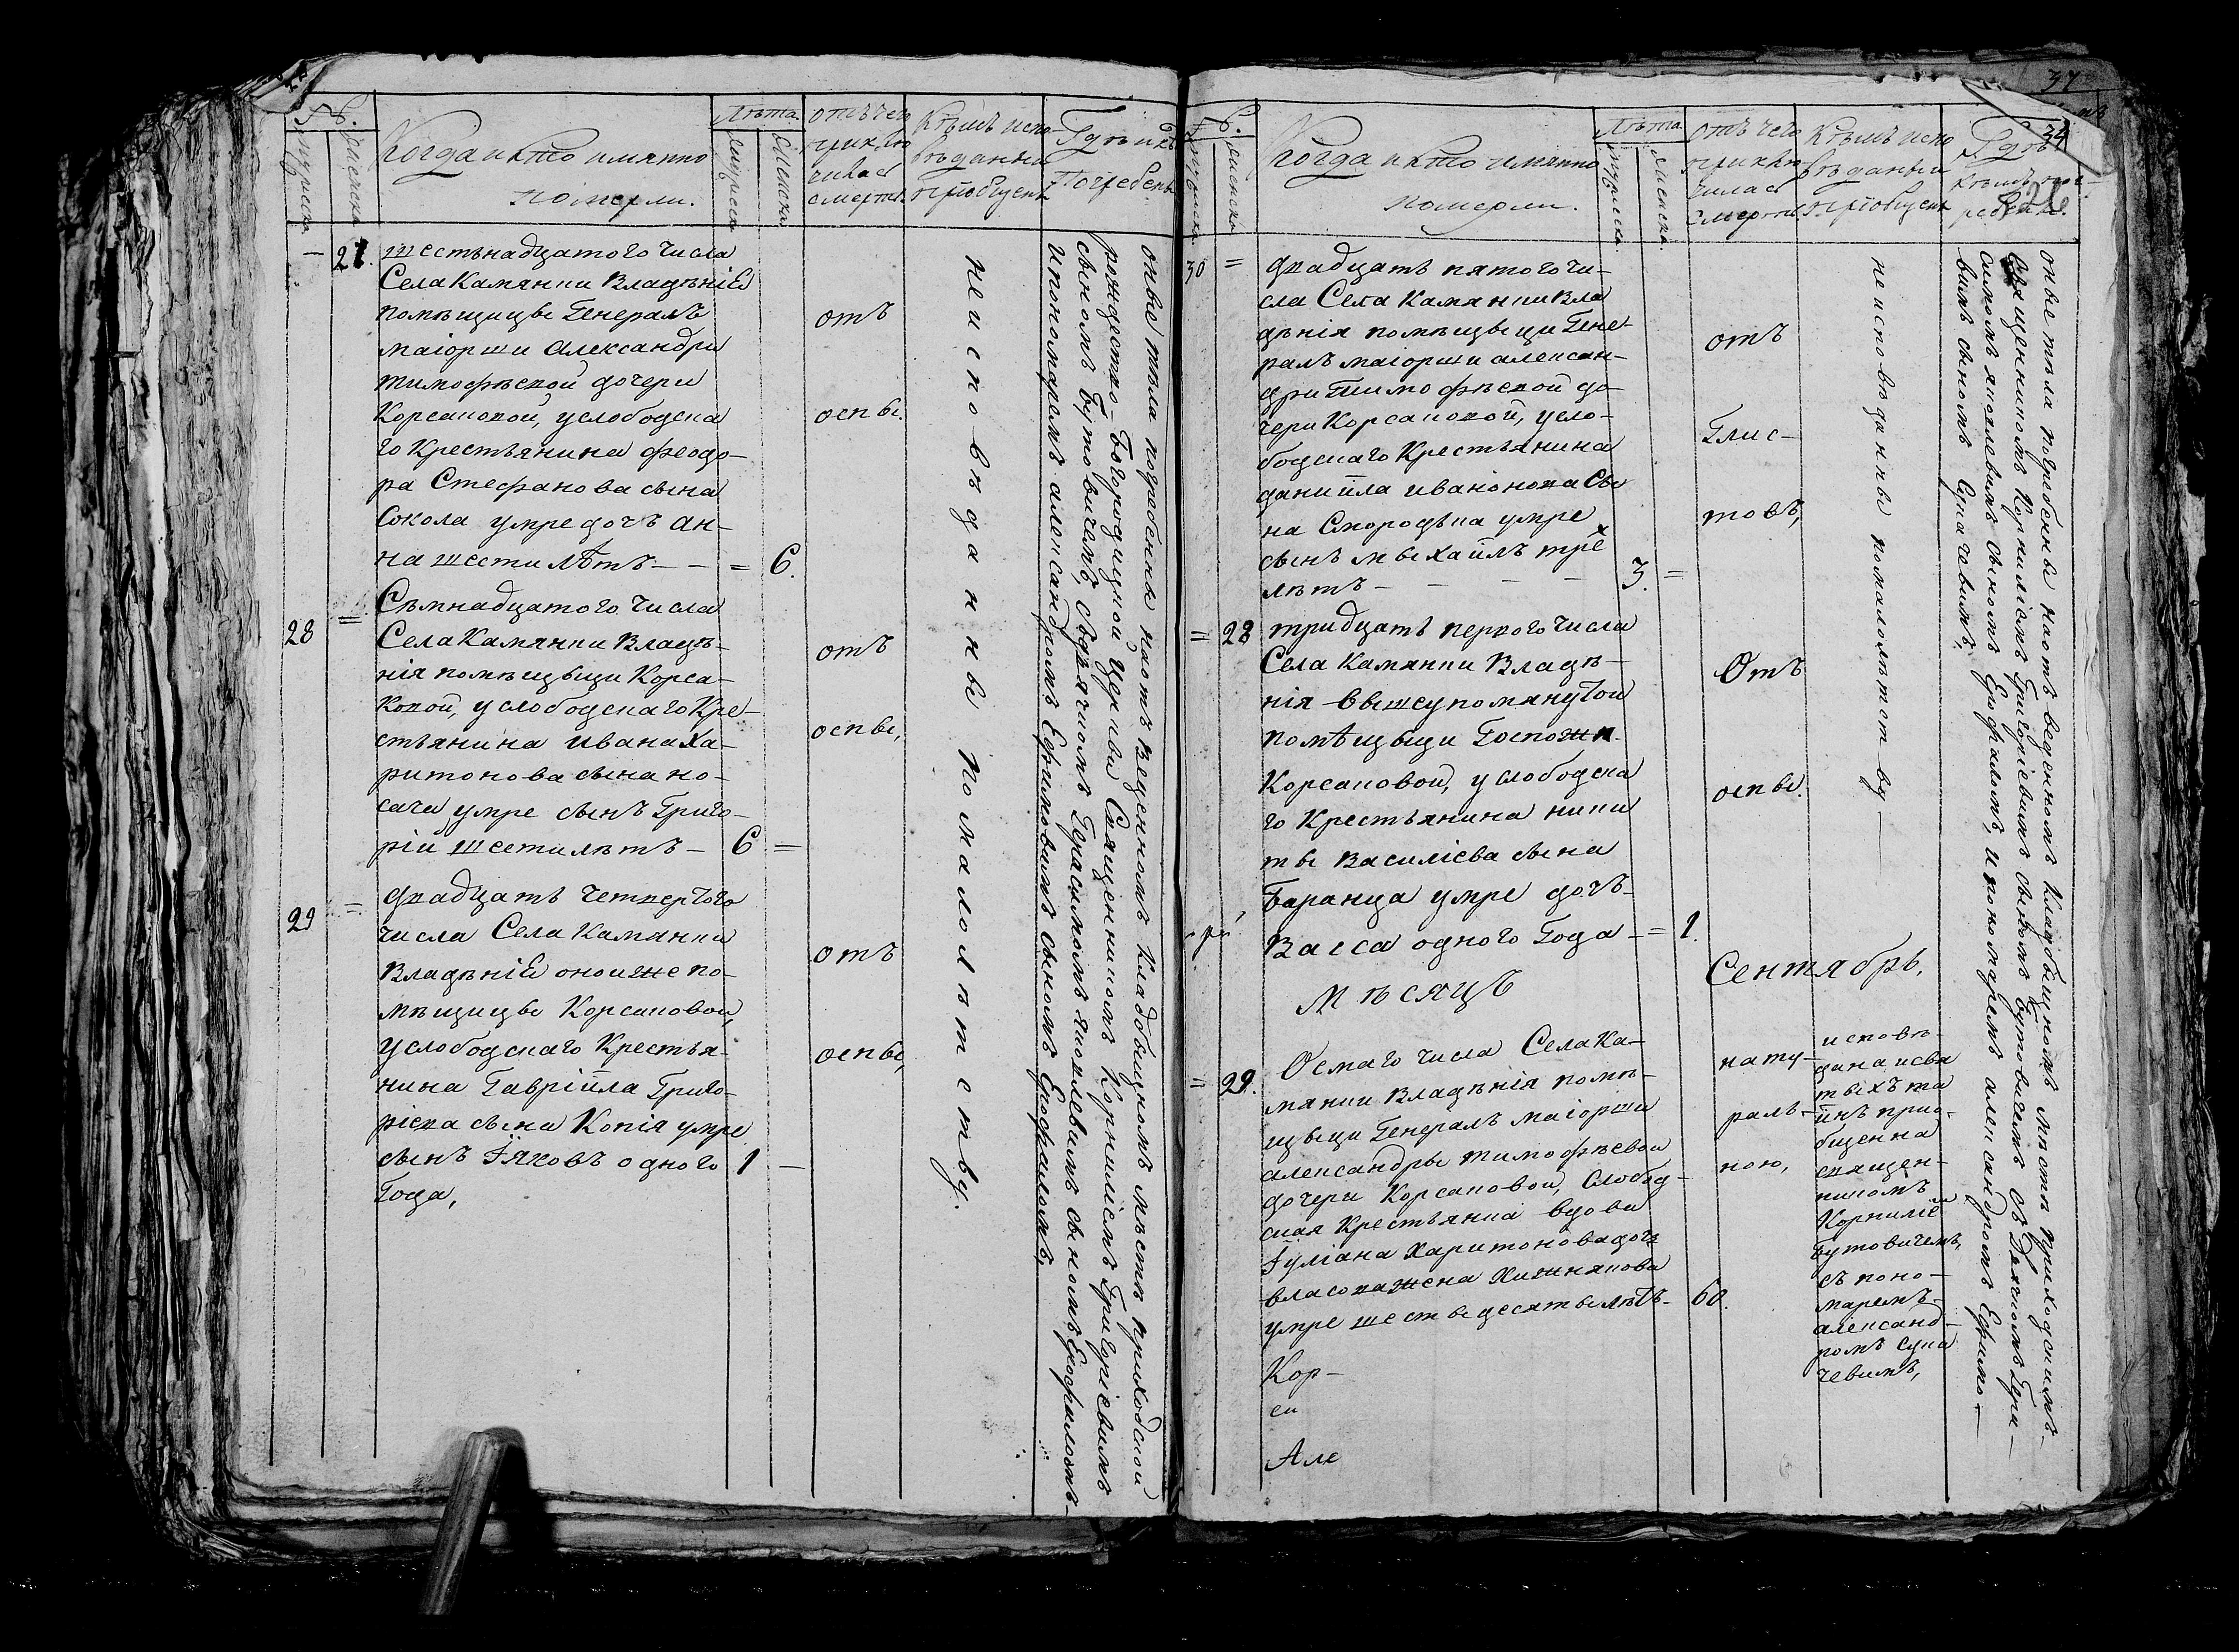 №.
мужеска
женска
Когда и кто имянно
померли.
Лѣта
мужеска
женска
отъ чего
приклю
чилас
смерть
Кѣмъ испо-
вѣданы и
приобщены
Гдѣ и кѣ
погребены
— 27.
шестьнадцатого числа
Села Камянки владѣнiЕ
помѣщицы Генералъ
маiорши Александры
тимофѣевой дочери
Корсаковой, услободска
го Крестьянина феодо-
ра Стефанова сына
Сокола умре дочъ ан-
на шести лѣтъ - - = 6.
отъ
оспы.
28 =
Сѣмнадцатого числа
Села Камянки владѣ-
нiя помѣщыци Корса-
ковой, услободского Кре-
стьянина ивана Ха-
ритонова сына но-
сача умре сынъ Григо-
рiй шести лѣтъ - 6 =
отъ
оспы,
29 =
двадцать четвертого
числа Села Камянки
владѣнiЕ оноиже по-
мѣщицы Корсаковои,
услободского Крестья-
нина Гаврiила Григо-
рiева сына Копiя умре
сынъ Iяковъ одного 1 -
Года,
отъ
оспы,
неисповѣданны помалолѣтству.
оные тѣла погребены наотъведенномъ кладбищномъ мѣстѣ приходской
рождество-Богородицной Церкви Священникомъ Корнилiемъ Григорiевимъ
сыномъ Бутовичемъ, съ Дячкомъ Герасимомъ яковлевимъ сыномъ Ерофиловимъ-
и пономаремъ александромъ Ефимовимъ сыномъ
37
34
№.
мужеска
женска
Когда и кто имянно
померли.
Лѣта
мужеска
женска
отъ чего
приклю
чилас
смерть
Кѣмъ испо
вѣданы и
прiобщены
Гдѣ
кѣмъ пог-
ребены.
30 =
двадцать пятого чи-
сла Села Камянки вла
дѣнiя помѣщыци Гене-
ралъ маiорши алексан-
дри Тимофѣевой до-
чери Корсаковой, усло-
бодскаго Крестьянина
данiила иванонова Сы
на Смородѣка умре
сынъ мыхаилъ трех
лѣтъ - - - - 3. =
отъ
Глис-
товъ,
= 28
тридцать первого числа
Села Камянки владѣ-
нiя вышеупомянутои
помѣщыци Госпожи
Корсаковои, услободска
го Крестьянина ники
ты василiева сына
Баранца умре дочъ-
васса одного Года - = 1.
Отъ
оспы.
неисповѣданны помалолѣтству —
Мѣсяцъ
Сентябрь,
= 29.
Осмаго числа Села Ка-
мянки владѣнiя помѣ-
щыци Генералъ маiорши
александры тимофѣевои
дочери Корсаковои, Слобод-
ская Крестьянка вдова
Iулiана Харитонова дочъ
власова жена Хижнякова
умре шестьдесятъ лѣтъ- 60.
нату-
раль-
ною,
исповѣ-
дана и свя
тыхъ та
инъ прио-
бщенна
священ-
никомъ
Корнилiе
Бутовичемъ,
съ поно-
маремъ-
александ-
ромъ Сука
чевимъ,
оные тѣла погребены наотъ веденномъ кладбищномъ мѣстѣ приходскимъ-
Священникомъ Корнилiемъ Григорiевимъ сыномъ Бутовичемъ съ Дячкомъ Гера-
симомъ яковлевимъ сыномъ Ерофиломъ, и пономаремъ александромъ Ефимо-
вимъ сыномъ Сукачевимъ,
Кор-
си
Але